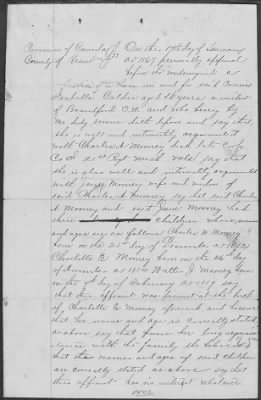 Province of Canada } On the 17th day of January
County of Brant } SS AD 1867 personally appeared
before the undersigned a
in and for said County
Isabella aged 28 years a resident
of Brantford C.W. and who being by
me duly sworn doth depose and say that
she is well and intimately acquainted
with Charles H Mowrey late
Co 21st Regt that
she is also well and intimately acquainted
with Jane Mowrey wife and widow of
said Charles H Mowrey say that said Charles
H Mowrey and said Jane Mowrey had
three children whose names
and ages are as follows Charles W Mowrey
born on the 21st day of December AD 1852
Charlotte E Mowrey born on the 16th day
of November AD 1854 Walter J Mowrey born
on the 9th day of February AD 1859 say
that this affiant was present at the birth
of Charlotte E Mowrey aforesaid and knows
that her name and age is correctly stated
as above say that from her long acquain
tance with the family she believes
that the names and ages of said children
are correctly stated as above say that
this affiant has no interest whatever